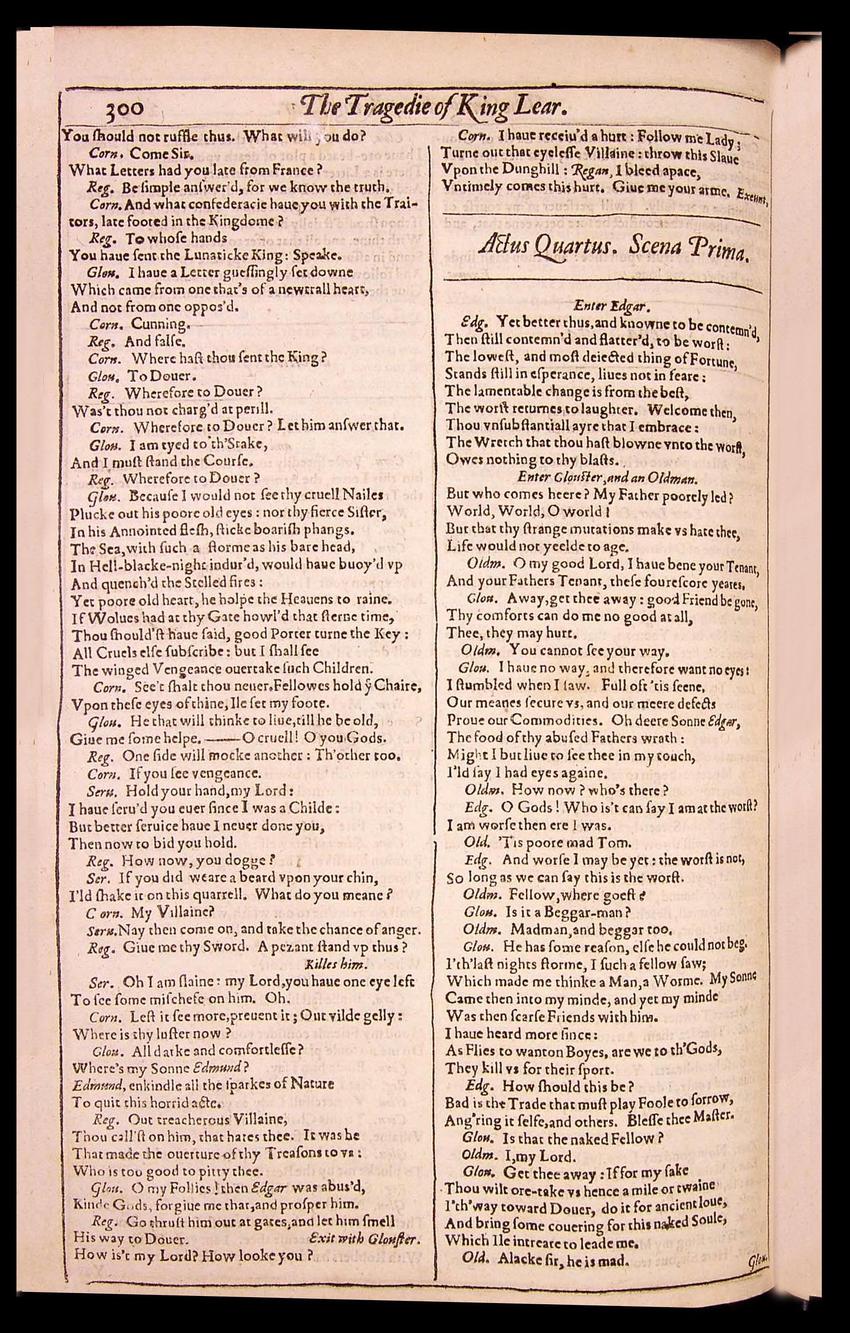 300
The Tragedie of King Lear.
You ſhould not ruffle thus. What will you do?
Corn. Come Sir.
What Letters had you late from France?
Reg. Be ſimple anſwer'd, for we know the truth.
Corn. And what confederacie haue you with the Trai-
tors, late footed in the Kingdome?
Reg. To whoſe hands
You haue ſent the Lunaticke King: Speake.
Glou. I haue a Letter gueſſingly ſet downe
Which came from one that's of a newtrall heart,
And not from one oppos'd.
Corn. Cunning.
Reg. And falſe.
Corn. Where haſt thou ſent the King?
Glou. To Douer.
Reg. Wherefore to Douer?
Was't thou not charg'd at perill.
Corn. Wherefore to Douer? Let him anſwer that.
Glou. I am tyed to'th'Stake,
And I muſt ſtand the Courſe.
Reg. Wherefore to Douer?
Glou. Becauſe I would not ſee thy cruell Nailes
Plucke out his poore old eyes: nor thy fierce Siſter,
In his Annointed fleſh, ſticke boariſh phangs.
The Sea, with ſuch a ſtorme as his bare head,
In Hell-blacke-night indur'd, would haue buoy'd vp
And quench'd the Stelled fires:
Yet poore old heart, he holpe the Heauens to raine.
If Wolues had at thy Gate howl'd that ſterne time,
Thou ſhould'ſt haue ſaid, good Porter turne the Key:
All Cruels elſe ſubſcribe: but I ſhall ſee
The winged Vengeance ouertake ſuch Children.
Corn. See't ſhalt thou neuer. Fellowes hold ẏ Chaire,
Vpon theſe eyes of thine, Ile ſet my foote.
Glou. He that will thinke to liue, till he be old,
Giue me ſome helpe. ——O cruell! O you Gods.
Reg. One ſide will mocke another: Th'other too.
Corn. If you ſee vengeance.
Seru. Hold your hand, my Lord:
I haue ſeru'd you euer ſince I was a Childe:
But better ſeruice haue I neuer done you,
Then now to bid you hold.
Reg. How now, you dogge?
Ser. If you did weare a beard vpon your chin,
I'ld ſhake it on this quarrell. What do you meane?
Corn. My Villaine?
Seru. Nay then come on, and take the chance of anger.
Reg. Giue me thy Sword. A pezant ſtand vp thus?
Killes him.
Ser. Oh I am ſlaine: my Lord, you haue one eye left
To ſee ſome miſchefe on him. Oh.
Corn. Leſt it ſee more, preuent it; Out vilde gelly:
Where is thy luſter now?
Glou. All darke and comfortleſſe?
Where's my Sonne Edmund?
Edmund, enkindle all the ſparkes of Nature
To quit this horrid acte.
Reg. Out treacherous Villaine,
Thou call'ſt on him, that hates thee. It was he
That made the ouerture of thy Treaſons to vs:
Who is too good to pitty thee.
Glou. O my Follies! then Edgar was abus'd,
Kinde Gods, forgiue me that, and proſper him.
Reg. Go thruſt him out at gates, and let him ſmell
His way to Douer. Exit with Glouſter.
How is't my Lord? How looke you?
Corn. I haue receiu'd a hurt: Follow me Lady;
Turne out that eyeleſſe Villaine: throw this Slaue
Vpon the Dunghill: Regan, I bleed apace,
Vntimely comes this hurt. Giue me your arme. Exeunt,
Actus Quartus. Scena Prima.
Enter Edgar.
Edg. Yet better thus, and knowne to be contemn'd,
Then ſtill contemn'd and flatter'd, to be worſt:
The loweſt, and moſt deiected thing of Fortune,
Stands ſtill in eſperance, liues not in feare:
The lamentable change is from the beſt,
The worſt returnes to laughter. Welcome then,
Thou vnſubſtantiall ayre that I embrace:
The Wretch that thou haſt blowne vnto the worſt,
Owes nothing to thy blaſts.
Enter Glouſter, and an Oldman.
But who comes heere? My Father poorely led?
World, World, O world!
But that thy ſtrange mutations make vs hate thee,
Life would not yeelde to age.
Oldm. O my good Lord, I haue bene your Tenant,
And your Fathers Tenant, theſe foureſcore yeares.
Glou. Away, get thee away: good Friend be gone,
Thy comforts can do me no good at all,
Thee, they may hurt.
Oldm. You cannot ſee your way.
Glou. I haue no way, and therefore want no eyes:
I ſtumbled when I ſaw. Full oft 'tis ſeene,
Our meanes ſecure vs, and our meere defects
Proue our Commodities. Oh deere Sonne Edgar,
The food of thy abuſed Fathers wrath:
Might I but liue to ſee thee in my touch,
I'ld ſay I had eyes againe.
Oldm. How now? who's there?
Edg. O Gods! Who is't can ſay I am at the worſt?
I am worſe then ere I was.
Old. 'Tis poore mad Tom.
Edg. And worſe I may be yet: the worſt is not,
So long as we can ſay this is the worſt.
Oldm. Fellow, where goeſt?
Glou. Is it a Beggar-man?
Oldm. Madman, and beggar too.
Glou. He has ſome reaſon, elſe he could not beg.
I'th'laſt nights ſtorme, I ſuch a fellow ſaw;
Which made me thinke a Man, a Worme. My Sonne
Came then into my minde, and yet my minde
Was then ſcarſe Friends with him.
I haue heard more ſince:
As Flies to wanton Boyes, are we to th'Gods,
They kill vs for their ſport.
Edg. How ſhould this be?
Bad is the Trade that muſt play Foole to ſorrow,
Ang'ring it ſelfe, and others. Bleſſe thee Maſter.
Glou. Is that the naked Fellow?
Oldm. I, my Lord.
Glou. Get thee away: If for my ſake
Thou wilt ore-take vs hence a mile or twaine
I'th'way toward Douer, do it for ancient loue,
And bring ſome couering for this naked Soule,
Which Ile intreate to leade me.
Old. Alacke ſir, he is mad.
Glou.